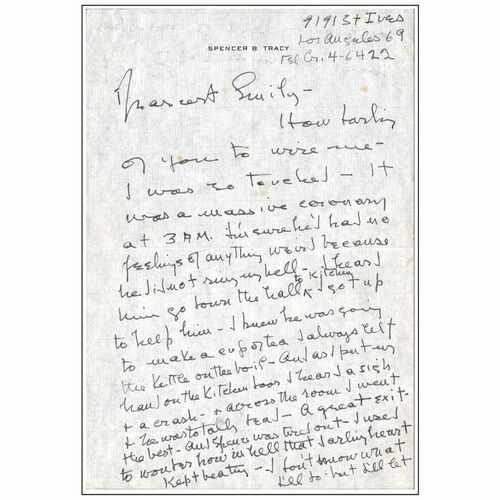 9191 St Ives
Los Angeles 69
Tel Cr. 4-6422
SPENCER B. TRACY
Dearest Emily -
How darling
of you to wire me -
I was so touched - It
was a massive coronary
at 3 A.M. I'm sure he'd had no
feelings of anything weird because
he did not ring my bell - I heard
him go down the hall to Kitchen & I got up
to help him - I knew he was going
to make a cup of tea I always left
the kettle on the boil - And as I put my
hand on the Kitchen door I heard a sigh
& a crash - & across the room I went
& he was totally dead - A great exit -
the best - And Spence was tired out - I used
to wonder how in hell that darling heart
Kept beating - I don't know what
I'll do - but I'll let